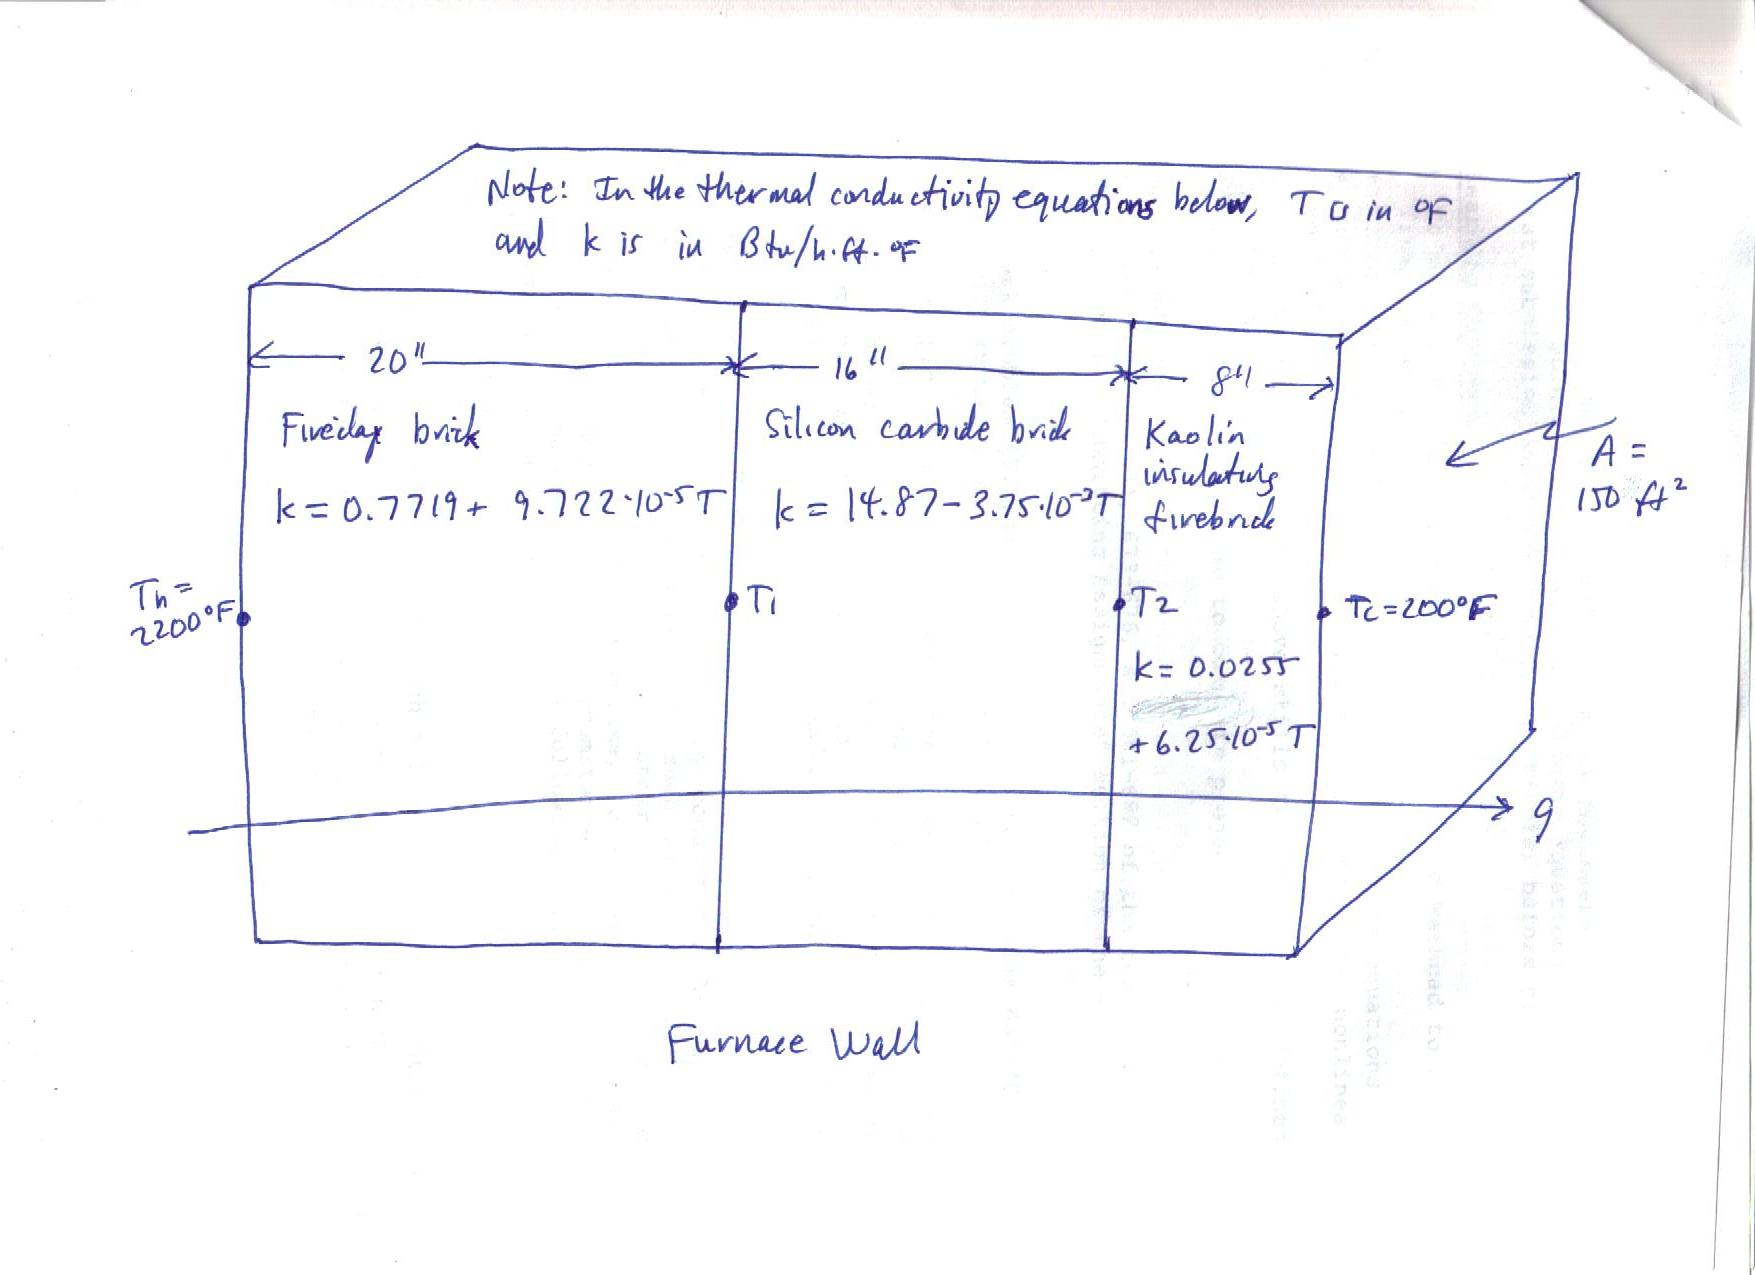 Note: In the thermal conductivity equations below, T is in °F
and k is in Btu/h.ft.°F
20" 16" 8"
Fireclay brick Silicon carbide brick Kaolin
insulating
firebrick
k = 0.7719 + 9.722·10⁻⁵T k = 14.87 - 3.75·10⁻³T
A =
150 ft²
Th =
2200°F
T1
T2
Tc = 200°F
k = 0.0255
+ 6.25·10⁻⁵ T
q
Furnace Wall